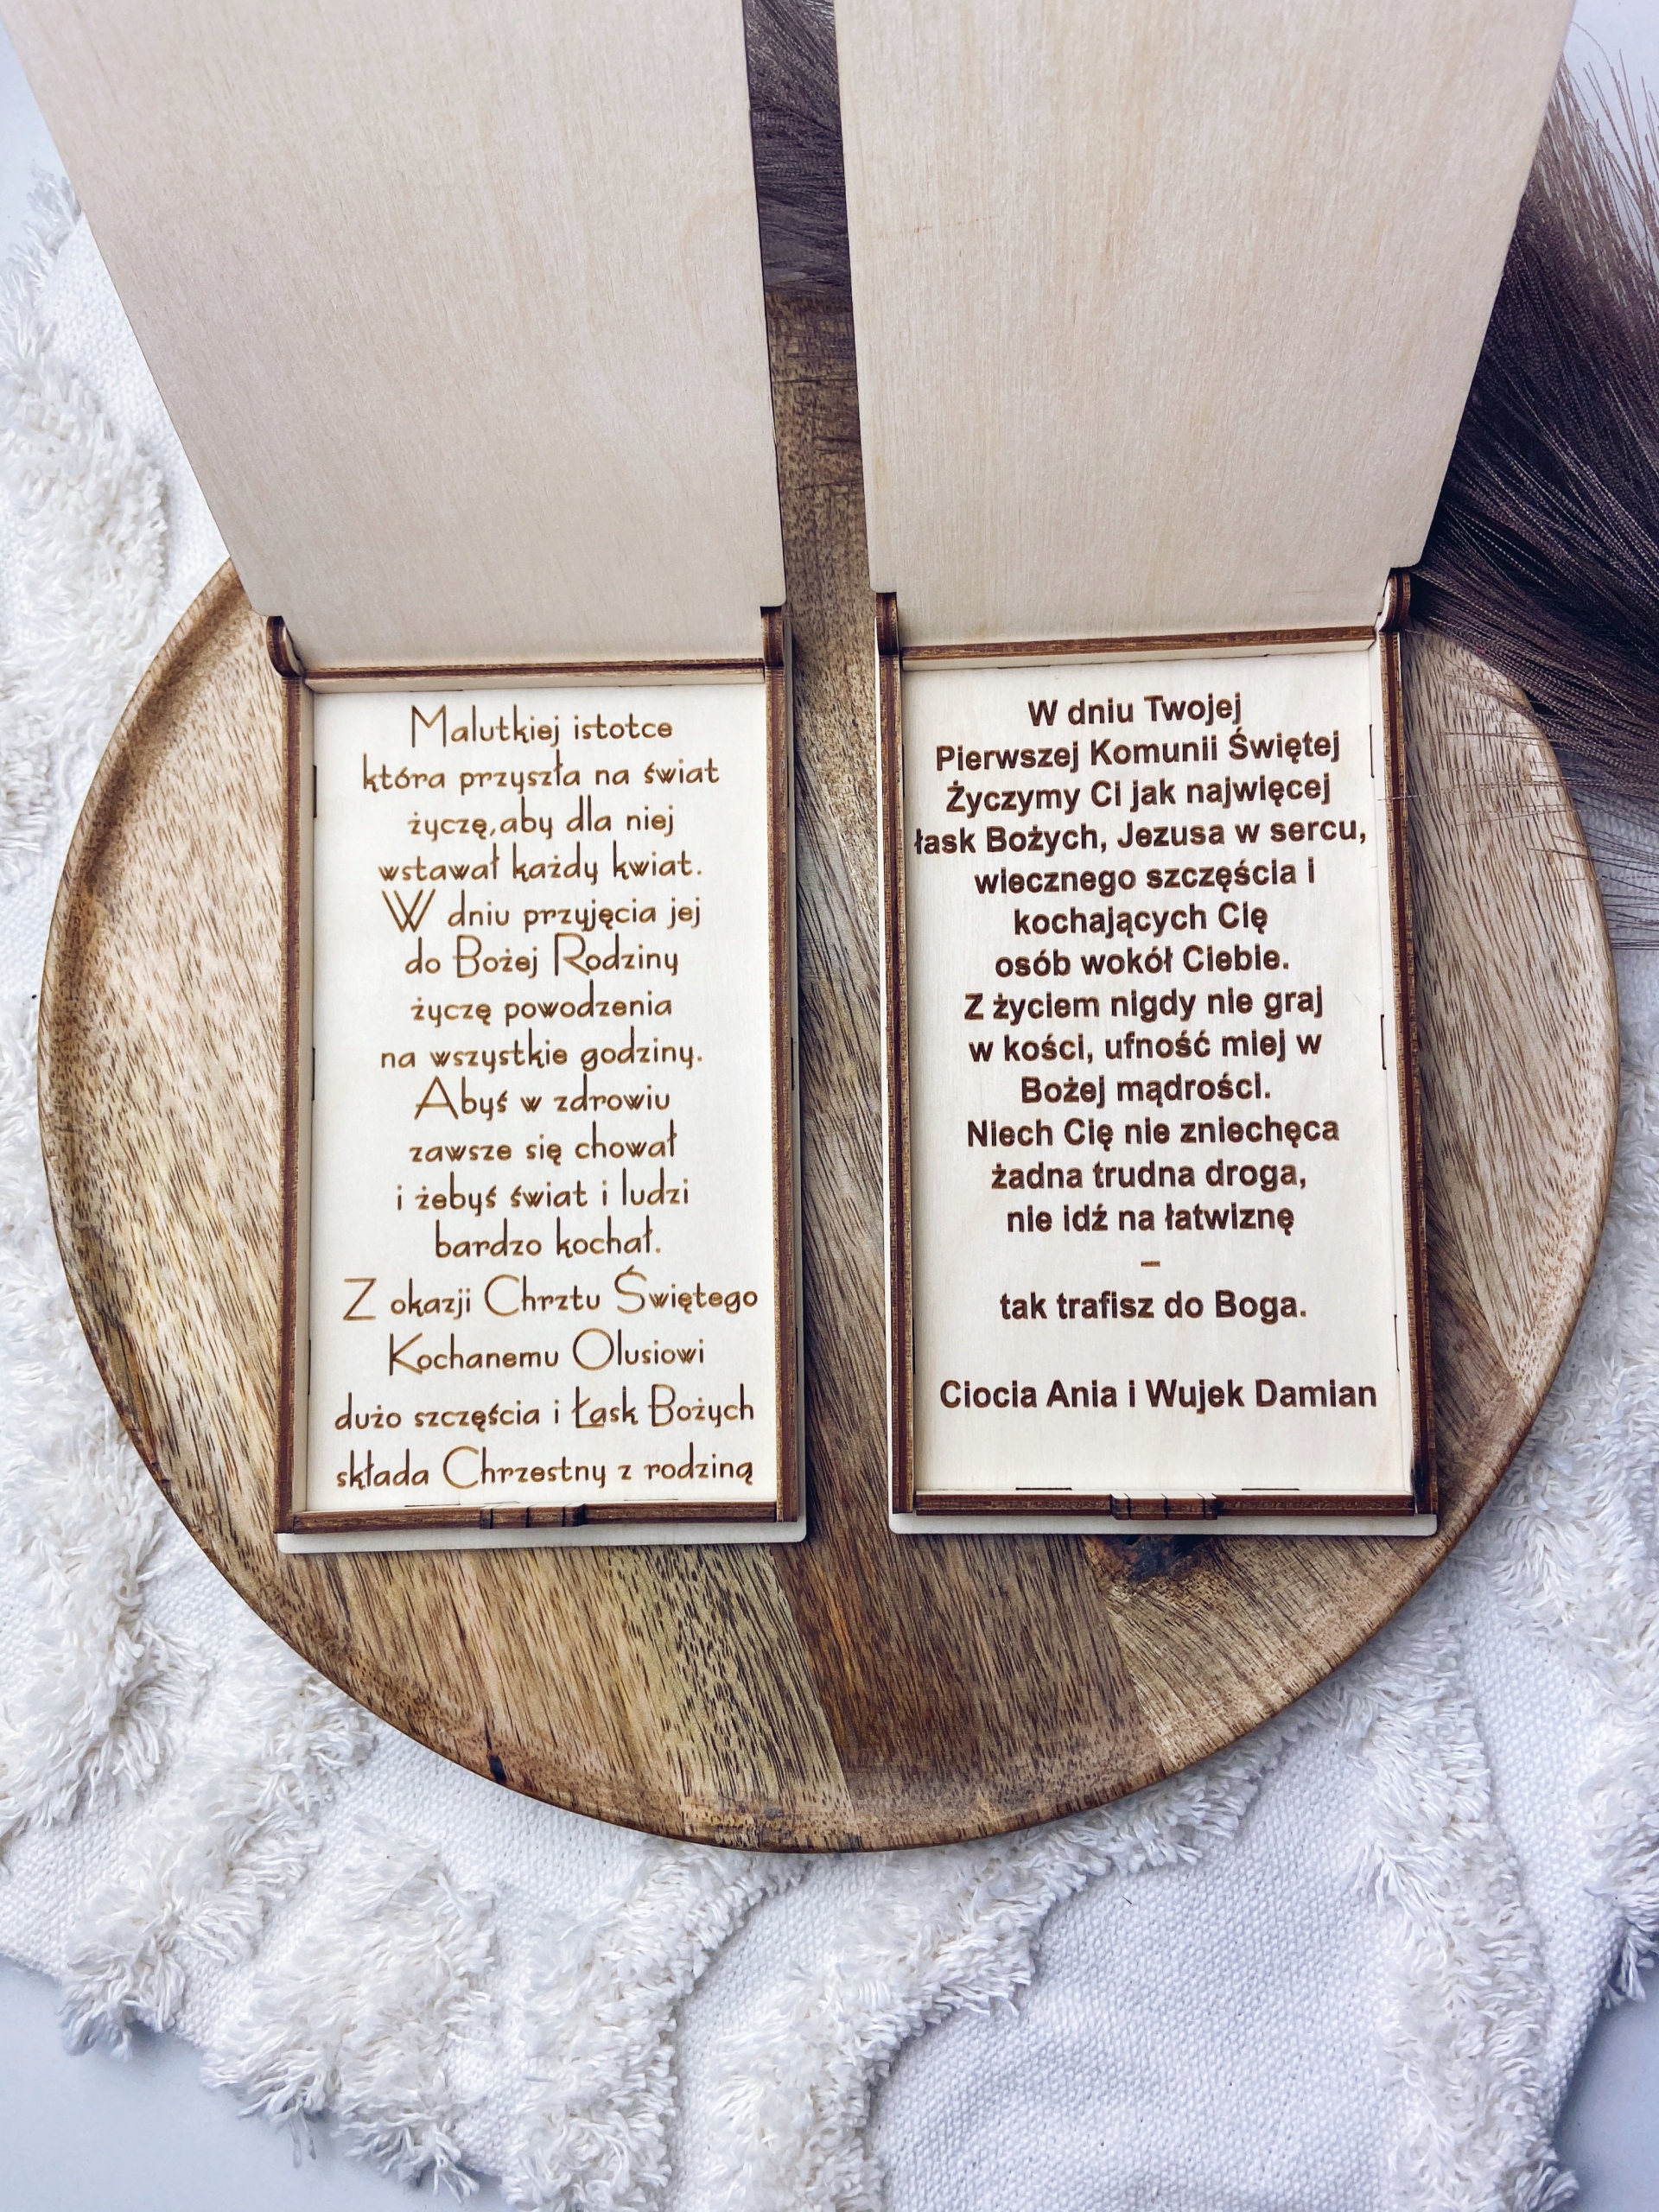 Malutkiej istotce
która przyszła na świat
życzę,aby dla niej
wstawał każdy kwiat.
W dniu przyjęcia jej
do Bożej Rodziny
życzę powodzenia
na wszystkie godziny.
Abyś w zdrowiu
zawsze się chował
i żebyś świat i ludzi
bardzo kochał.
Z okazji Chrztu Świętego
Kochanemu Olusiowi
dużo szczęścia i Łask Bożych
składa Chrzestny z rodziną
W dniu Twojej
Pierwszej Komunii Świętej
Życzymy Ci jak najwięcej
łask Bożych, Jezusa w sercu,
wiecznego szczęścia i
kochających Cię
osób wokół Ciebie.
Z życiem nigdy nie graj
w kości, ufność miej w
Bożej mądrości.
Niech Cię nie zniechęca
żadna trudna droga,
nie idź na łatwiznę
–
tak trafisz do Boga.
Ciocia Ania i Wujek Damian